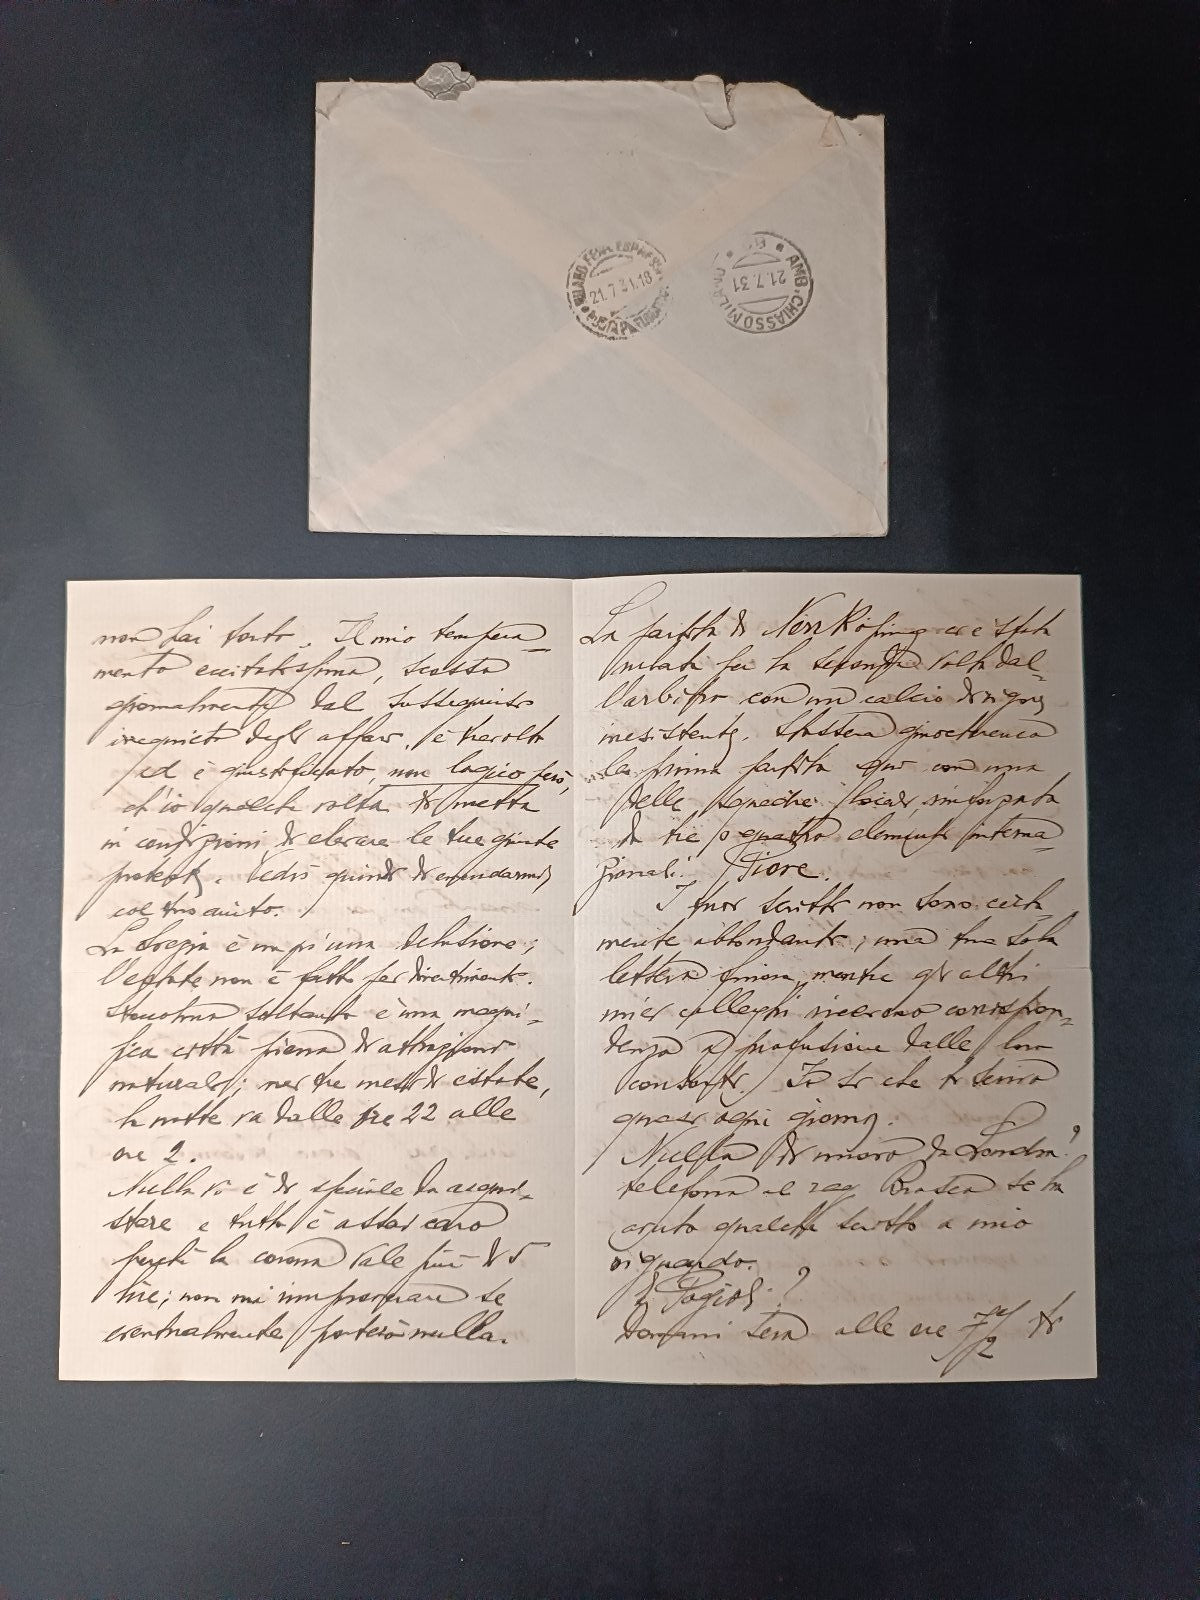 MILANO FERR. ESPRESSI
21.7.31.18
AMB. CHIASSO MILANO
21.7.31
non hai torto. Il mio tempera=
mento eccitatissimo, scosso
giornalmente dal susseguirsi
irrequieto degli affari, è travolto
ed è giustificato, non logico però,
ch'io qualche volta ti metta
in condizioni di elevare le tue giuste
proteste. Vedrò quindi di emendarmi
col tuo aiuto.
La Svezia è un po' una delusione;
l'estate non è fatta per divertimenti.
Stoccolma soltanto è una magni=
fica città piena di attrazioni
naturali; nei tre mesi di estate,
la notte va dalle ore 22 alle
ore 2.
Nulla vi è di speciale da acqui=
stare e tutto è assai caro
perché la corona vale più di 5
lire; non mi rimproverare se
eventualmente porterò nulla.
La partita di Norrkoping ci è stata
rubata per la seconda volta dal=
l'arbitro con un calcio di rigore
inesistente. Stassera giuocheremo
la prima partita qui con una
delle squadre locali, rinforzata
da tre o quattro elementi interna=
zionali.
I tuoi scritti non sono certa=
mente abbondanti; una tua sola
lettera finora, mentre gli altri
miei colleghi ricevono corrispon=
denza a profusione dalle loro
consorti. Io so che ti scrivo
quasi ogni giorno.
Nulla di nuovo da Londra?
telefona al rag. Brasca se ha
avuto qualche scritto a mio
riguardo.
Domani sera alle ore 7 1/2 ti